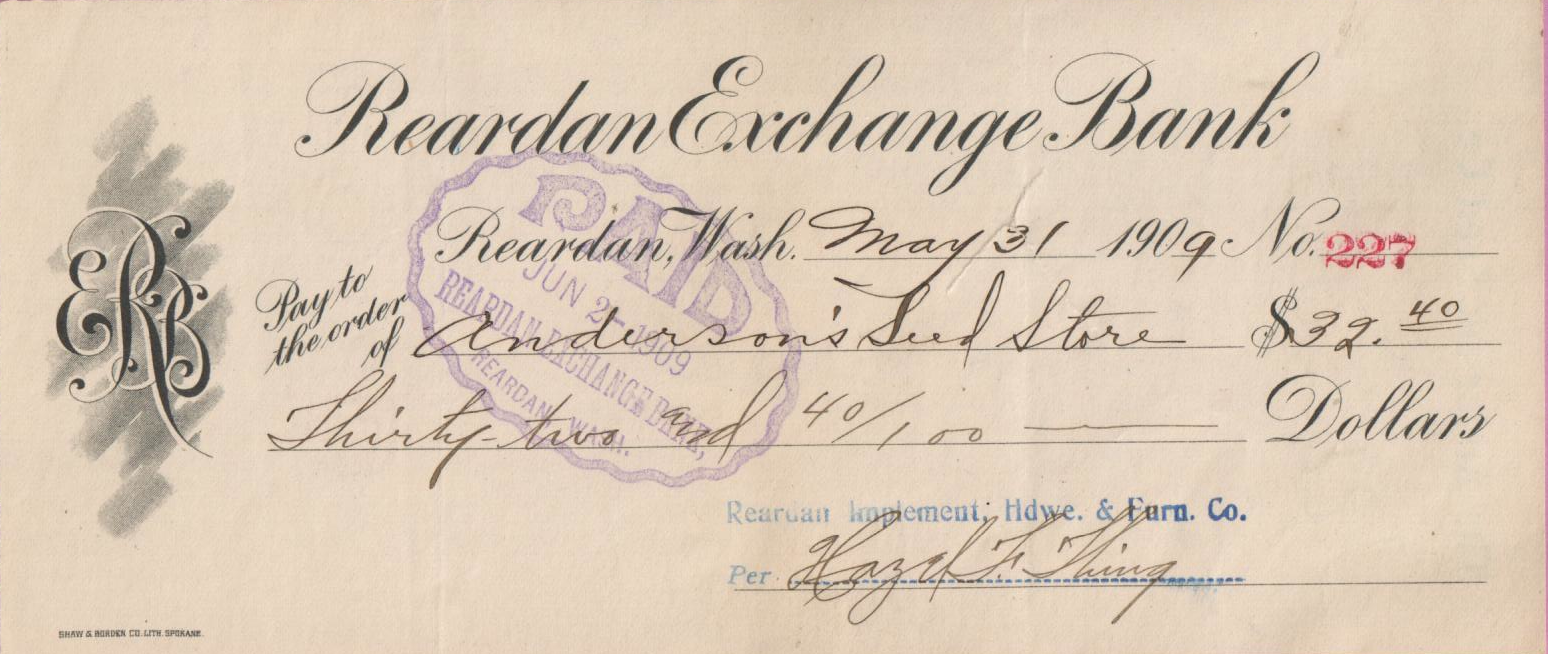 Reardan Exchange Bank
PAID
JUN 2 - 1909
REARDAN EXCHANGE BANK,
REARDAN, WASH.
ERB
Reardan, Wash. May 31 1909 No. 227
Pay to the order of Anderson's Seed Store $32.40
Thirty-two and 40/100 Dollars
Reardan Implement, Hdwe. & Furn. Co.
Per Hazel F. Thing
SHAW & BORDEN CO. LITH. SPOKANE.